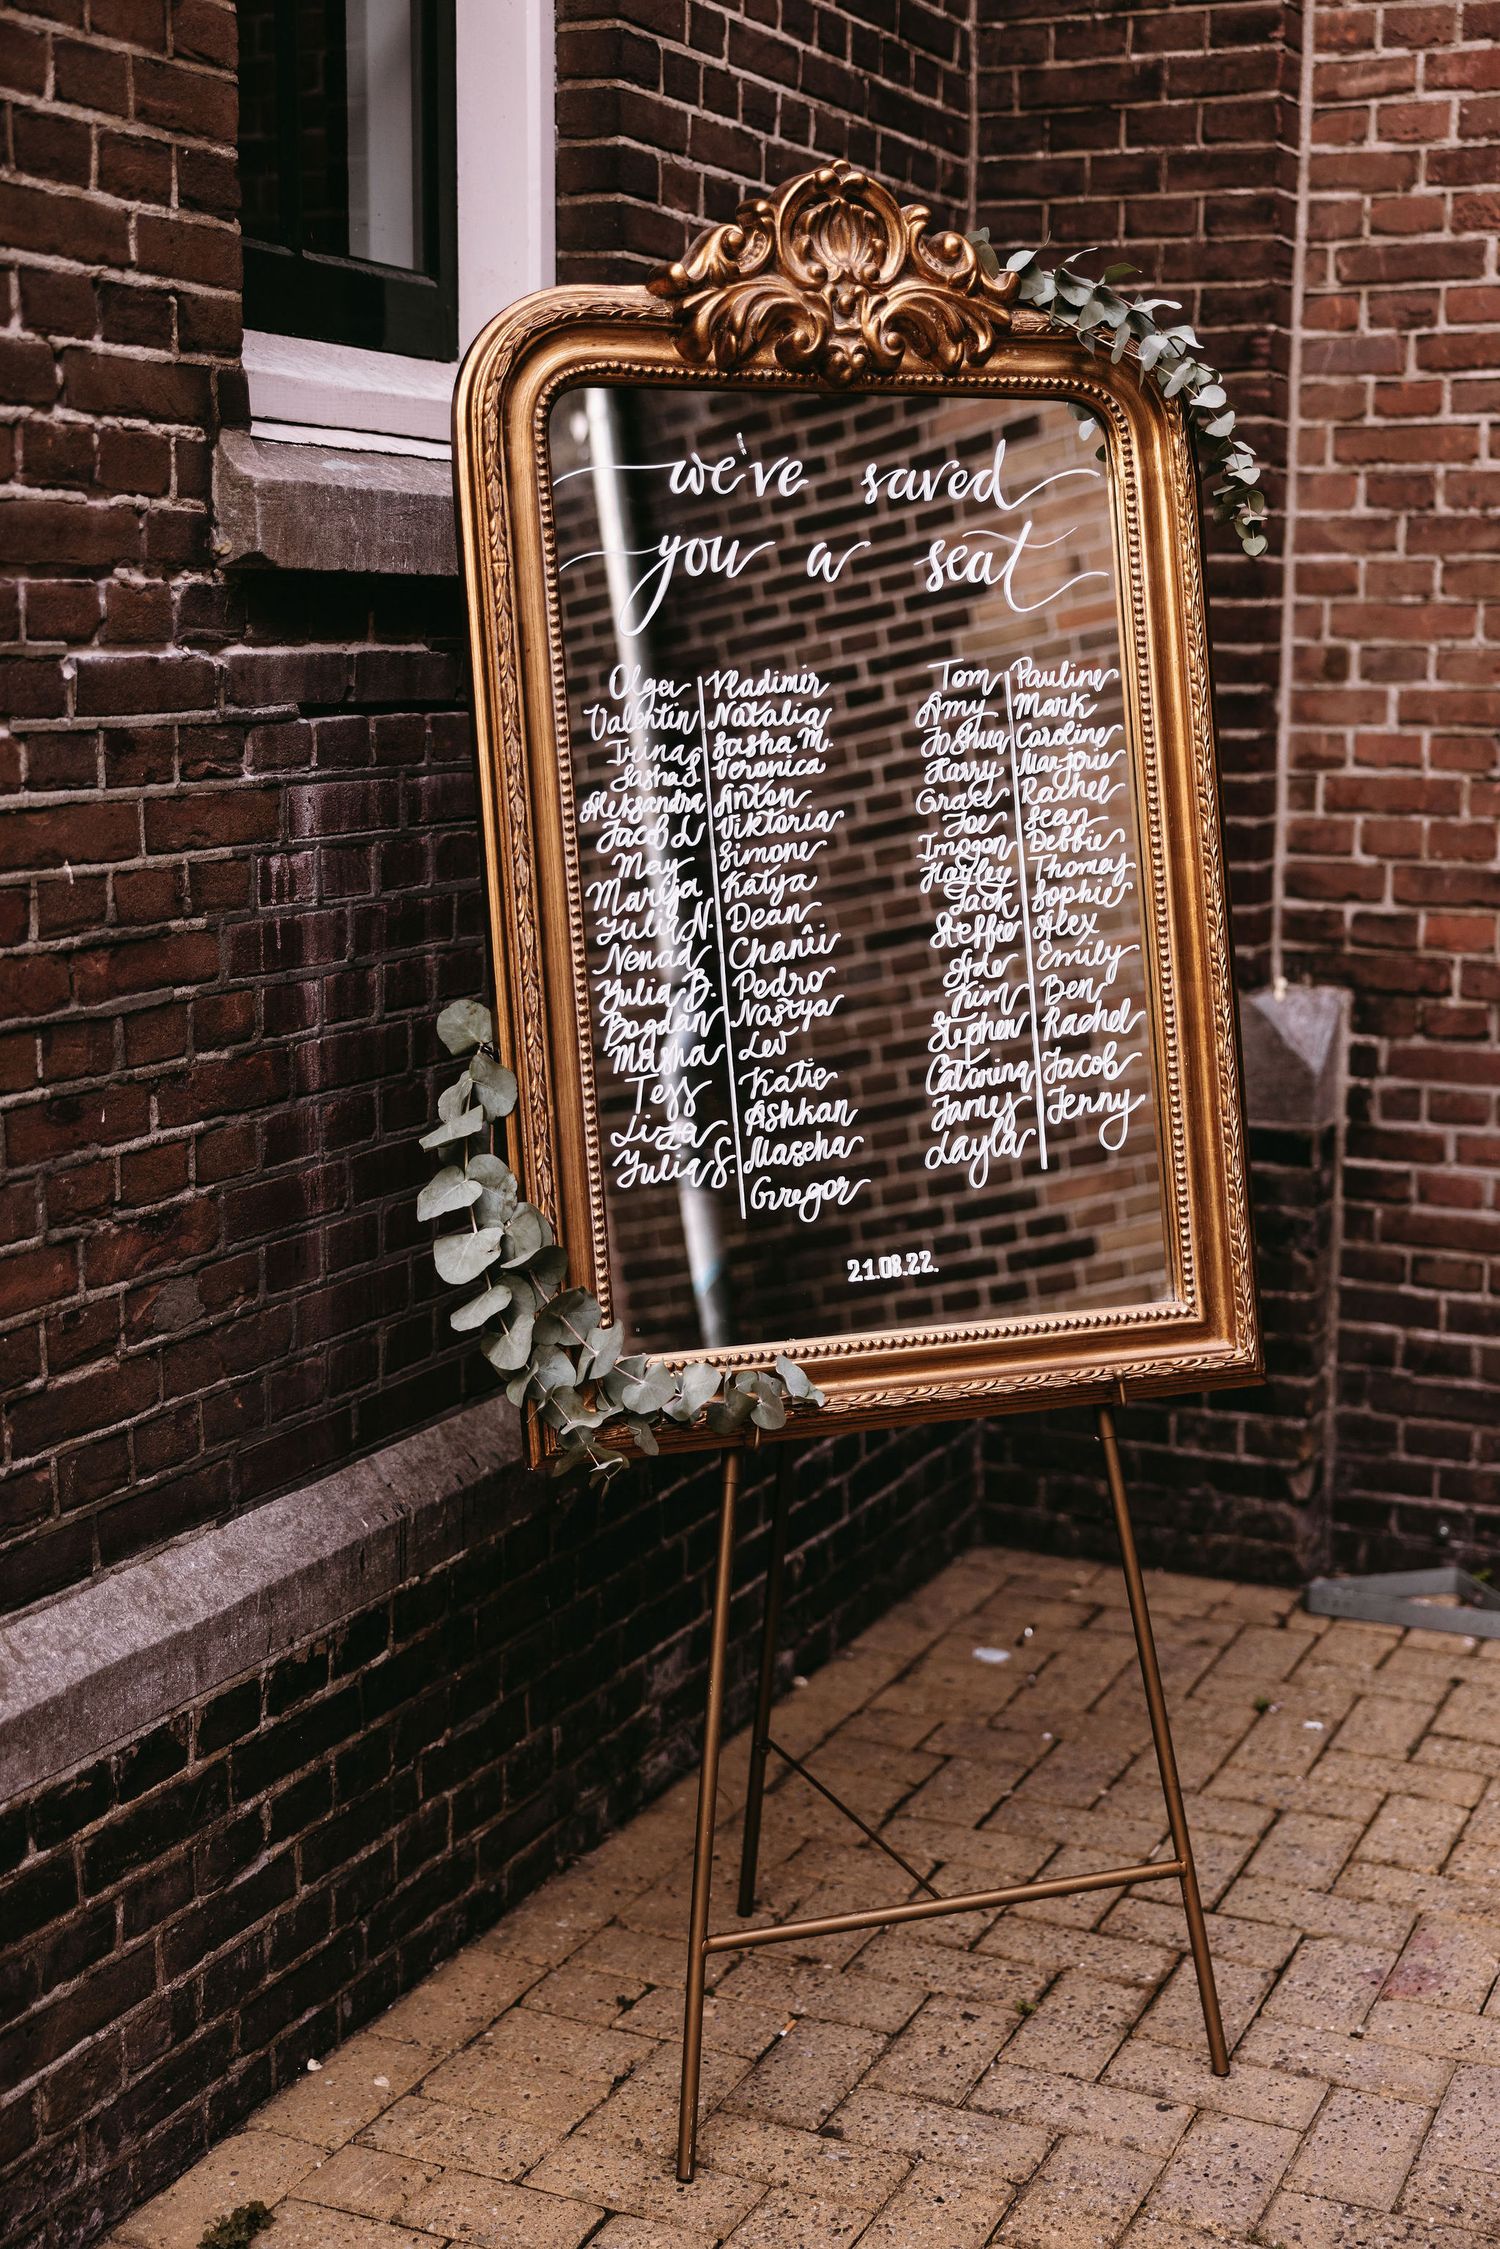 we've saved
you a seat
Olga | Vladimir
Valentin | Natalia
Irina | Sasha M.
Sasha S. | Veronica
Aleksandra | Anton
Jacob L | Viktoria
May | Simone
Marija | Katya
Yulia N. | Dean
Nenad | Chanîi
Yulia B. | Pedro
Bogdan | Nastya
Masha | Lev
Tess | Katie
Liza | Ashkan
Yulia S. | Mascha
Gregor
Tom | Pauline
Amy | Mark
Joshua | Caroline
Harry | Marjorie
Grace | Rachel
Joe | Sean
Imogen | Debbie
Hayley | Thomas
Jack | Sophie
Steffie | Alex
Ade | Emily
Kim | Ben
Stephen | Rachel
Catarina | Jacob
James | Jenny
Layla
21.08.22.